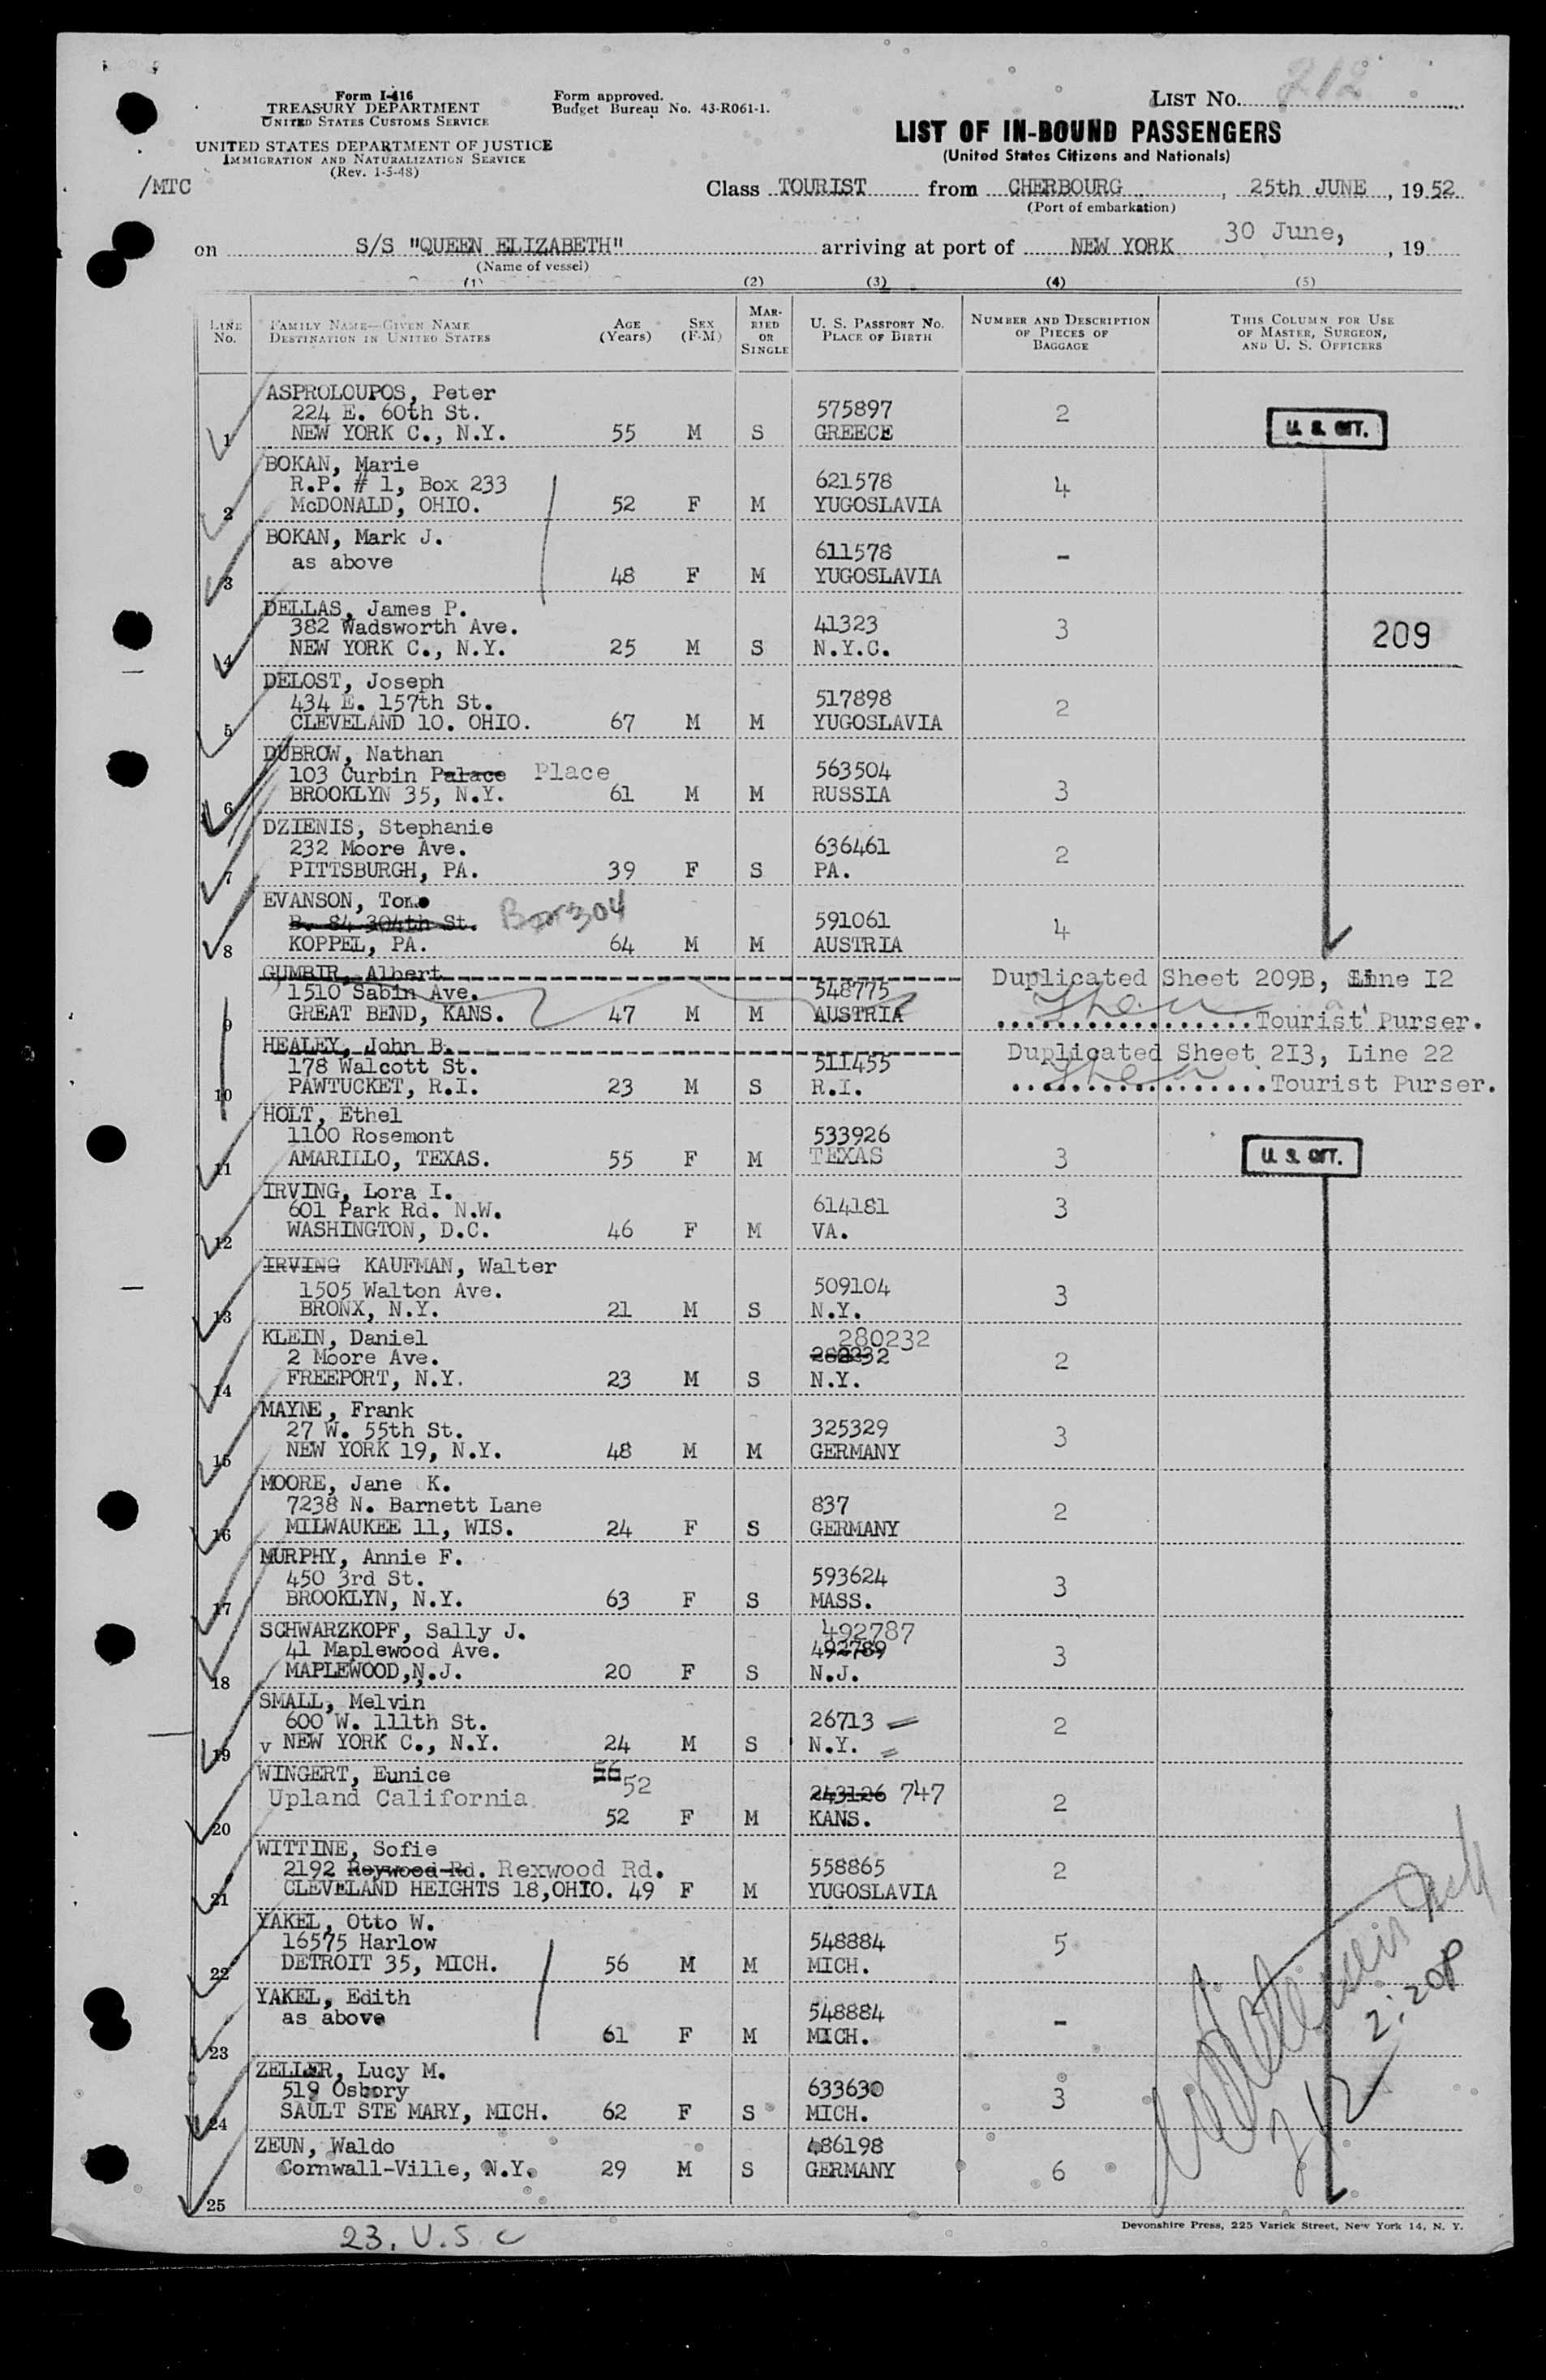 Form I-416
TREASURY DEPARTMENT
UNITED STATES CUSTOMS SERVICE
UNITED STATES DEPARTMENT OF JUSTICE
IMMIGRATION AND NATURALIZATION SERVICE
(Rev. 1-5-48)
Form approved.
Budget Bureau No. 43-R061-1.
LIST No. 212
LIST OF IN-BOUND PASSENGERS
(United States Citizens and Nationals)
/MTC
Class TOURIST from CHERBOURG, 25th JUNE, 1952
(Port of embarkation)
on S/S "QUEEN ELIZABETH" arriving at port of NEW YORK 30 June, 19
(Name of vessel)
(1) (2) (3) (4) (5)
LINE No.
FAMILY NAME—GIVEN NAME
DESTINATION IN UNITED STATES
AGE (Years)
SEX (F-M)
MARRIED OR SINGLE
U. S. PASSPORT No.
PLACE OF BIRTH
NUMBER AND DESCRIPTION OF PIECES OF BAGGAGE
THIS COLUMN FOR USE OF MASTER, SURGEON, AND U. S. OFFICERS
ASPROLOUPOS, Peter
224 E. 60th St. 575897 2
1 NEW YORK C., N.Y. 55 M S GREECE U. S. CIT.
BOKAN, Marie
R.P. # 1, Box 233 621578 4
2 McDONALD, OHIO. 52 F M YUGOSLAVIA
BOKAN, Mark J.
as above 611578 -
3 48 F M YUGOSLAVIA
DELLAS, James P.
382 Wadsworth Ave. 41323 3 209
4 NEW YORK C., N.Y. 25 M S N.Y.C.
DELOST, Joseph
434 E. 157th St. 517898 2
5 CLEVELAND 10. OHIO. 67 M M YUGOSLAVIA
DUBROW, Nathan
103 Curbin Palace Place 563504
6 BROOKLYN 35, N.Y. 61 M M RUSSIA 3
DZIENIS, Stephanie
232 Moore Ave. 636461 2
7 PITTSBURGH, PA. 39 F S PA.
EVANSON, Tom
B. 84 304th St. Box 304 591061 4
8 KOPPEL, PA. 64 M M AUSTRIA
GUMBIR, Albert Duplicated Sheet 209B, Line I2
1510 Sabin Ave. 548775
9 GREAT BEND, KANS. 47 M M AUSTRIA .................Tourist Purser.
HEALEY, John B. Duplicated Sheet 2I3, Line 22
178 Walcott St. 511455
10 PAWTUCKET, R.I. 23 M S R.I. .................Tourist Purser.
HOLT, Ethel
1100 Rosemont 533926
11 AMARILLO, TEXAS. 55 F M TEXAS 3 U. S. CIT.
IRVING, Lora I.
601 Park Rd. N.W. 614181 3
12 WASHINGTON, D.C. 46 F M VA.
IRVING KAUFMAN, Walter
1505 Walton Ave. 509104 3
13 BRONX, N.Y. 21 M S N.Y.
KLEIN, Daniel 280232
2 Moore Ave. 280232 2
14 FREEPORT, N.Y. 23 M S N.Y.
MAYNE, Frank
27 W. 55th St. 325329 3
15 NEW YORK 19, N.Y. 48 M M GERMANY
MOORE, Jane K.
7238 N. Barnett Lane 837 2
16 MILWAUKEE 11, WIS. 24 F S GERMANY
MURPHY, Annie F.
450 3rd St. 593624 3
17 BROOKLYN, N.Y. 63 F S MASS.
SCHWARZKOPF, Sally J. 492787
41 Maplewood Ave. 492789 3
18 MAPLEWOOD, N.J. 20 F S N.J.
SMALL, Melvin
600 W. 111th St. 26713 2
19 v NEW YORK C., N.Y. 24 M S N.Y.
WINGERT, Eunice 56 52
Upland California 243126 747 2
20 52 F M KANS.
WITTINE, Sofie
2192 Roywood Rd. Rexwood Rd. 558865 2
21 CLEVELAND HEIGHTS 18,OHIO. 49 F M YUGOSLAVIA
YAKEL, Otto W.
16575 Harlow 548884 5
22 DETROIT 35, MICH. 56 M M MICH.
YAKEL, Edith
as above 548884 -
23 61 F M MICH.
ZELLER, Lucy M.
519 Osbory 633630 3
24 SAULT STE MARY, MICH. 62 F S MICH.
ZEUN, Waldo 486198
Cornwall-Ville, N.Y. 29 M S GERMANY 6
25
2:20P
212
Devonshire Press, 225 Varick Street, New York 14, N. Y.
23. U.S.C